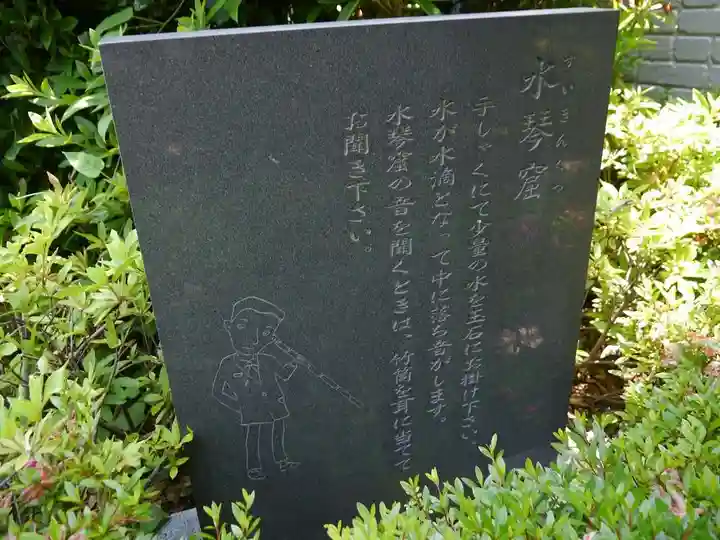 すいきんくつ
水琴窟
手しゃくにて少量の水を玉石にお掛け下さい。
水が水滴となって中に落ち音がします。
水琴窟の音を聞くときは、竹筒を耳に当てて
お聞き下さい。